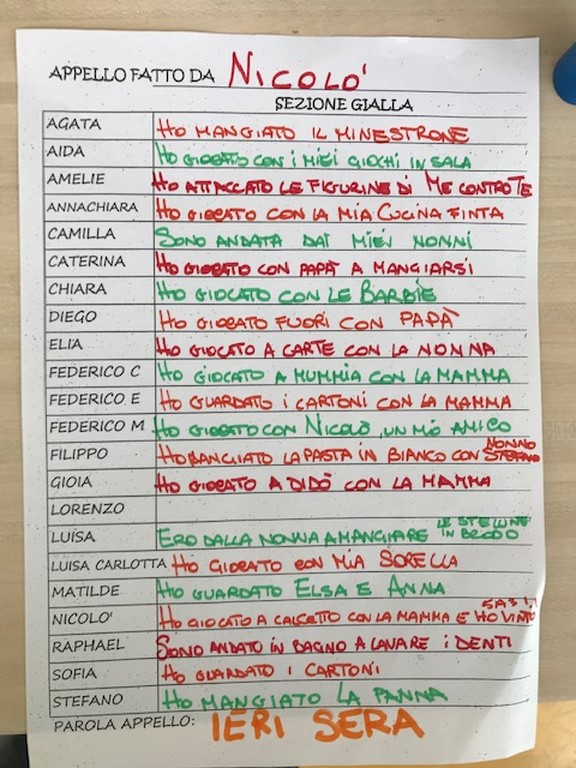 APPELLO FATTO DA NICOLO'
SEZIONE GIALLA
AGATA HO MANGIATO IL MINESTRONE
AIDA HO GIOCATO CON I MIEI GIOCHI IN SALA
AMELIE HO ATTACCATO LE FIGURINE DI ME CONTRO TE
ANNACHIARA HO GIOCATO CON LA MIA CUCINA FINTA
CAMILLA SONO ANDATA DAI MIEI NONNI
CATERINA HO GIOCATO CON PAPÀ A MANGIARSI
CHIARA HO GIOCATO CON LE BARBIE
DIEGO HO GIOCATO FUORI CON PAPÀ
ELIA HO GIOCATO A CARTE CON LA NONNA
FEDERICO C HO GIOCATO A MUMMIA CON LA MAMMA
FEDERICO E HO GUARDATO I CARTONI CON LA MAMMA
FEDERICO M HO GIOCATO CON NICOLÒ, UN MIO AMICO
FILIPPO HO MANGIATO LA PASTA IN BIANCO CON NONNO STEFANO
GIOIA HO GIOCATO A DIDÒ CON LA MAMMA
LORENZO
LUISA ERO DALLA NONNA A MANGIARE LE STELLINE IN BRODO
LUISA CARLOTTA HO GIOCATO CON MIA SORELLA
MATILDE HO GUARDATO ELSA E ANNA
NICOLO' HO GIOCATO A CALCETTO CON LA MAMMA E HO VINTO 5 A 3!!
RAPHAEL SONO ANDATO IN BAGNO A LAVARE I DENTI
SOFIA HO GUARDATO I CARTONI
STEFANO HO MANGIATO LA PANNA
PAROLA APPELLO: IERI SERA